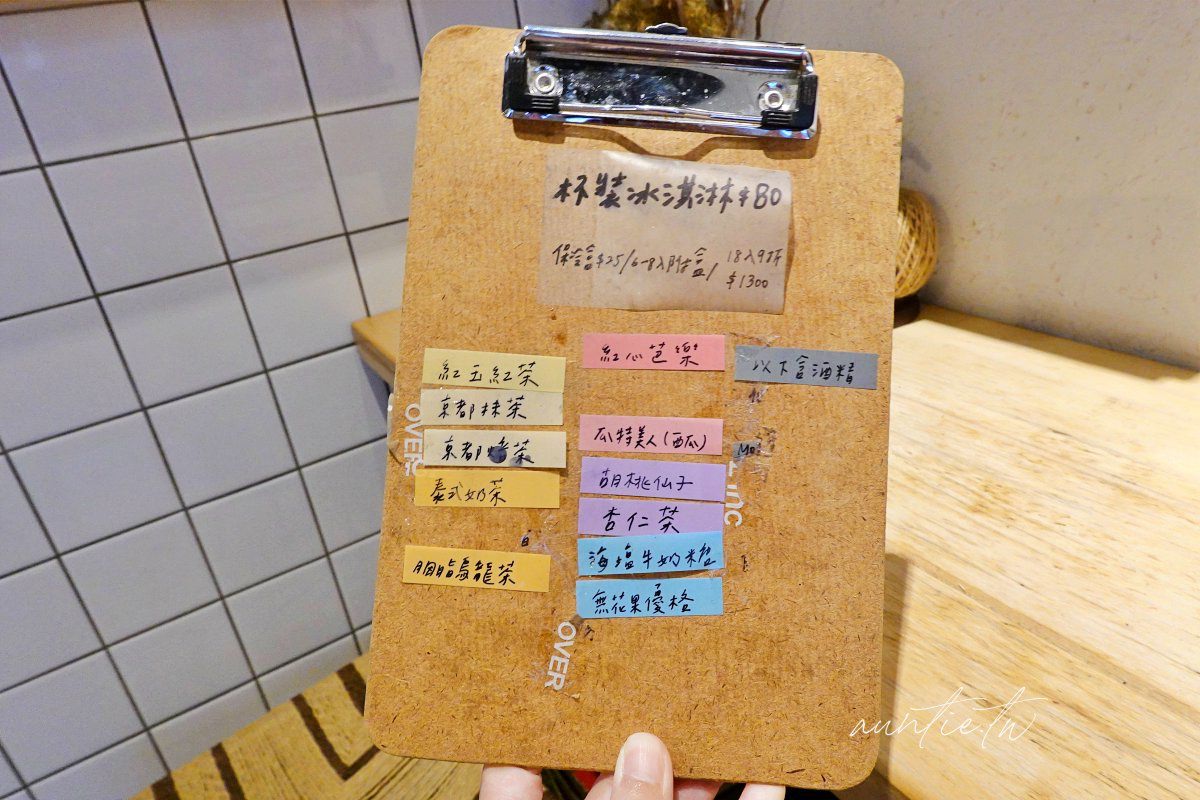 杯裝冰淇淋$80
保冷盒$25/6-8入附盒/ 18入9折
$1300
紅玉紅茶
京都抹茶
京都焙茶
泰式奶茶
胭脂烏龍茶
紅心芭樂
瓜特美人(西瓜)
胡桃仙子
杏仁茶
海塩牛奶糖
無花果優格
以下含酒精
OVER
OVER
auntie.tw